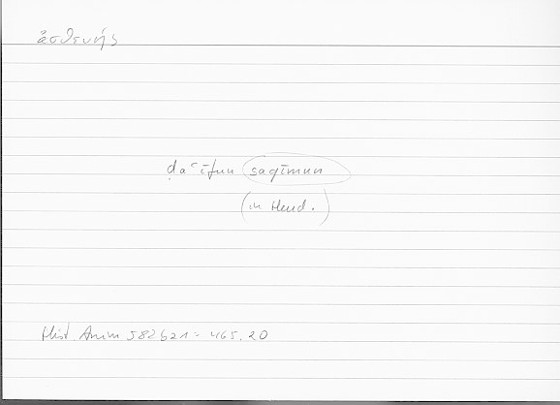 ἀσθενής
ḍaʿīfun saqīmun
(in Hend.)
Hist. Anim 582b21 = 465,20